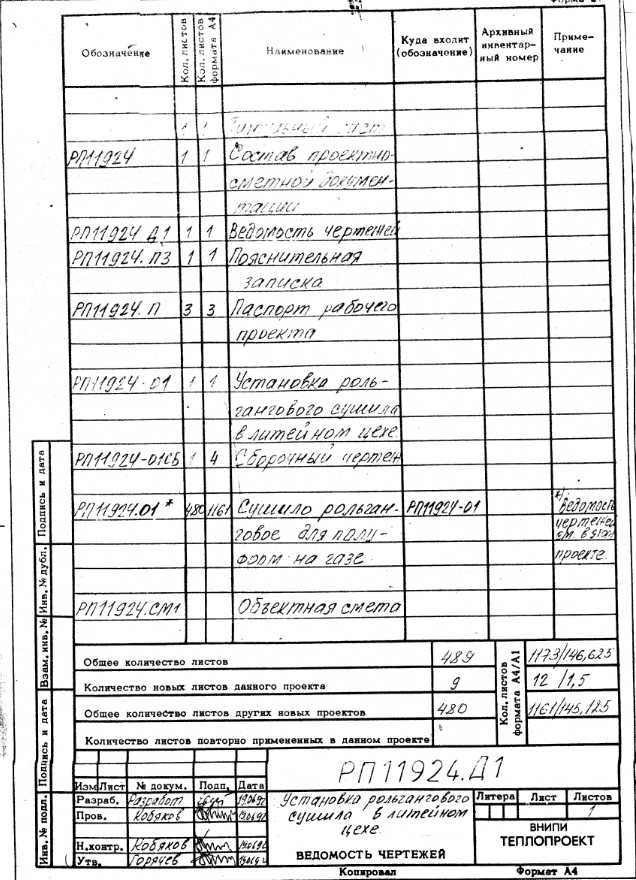 Обозначение Кол. листов Кол. листов формата А4 Наименование Куда входит (обозначение) Архивный инвентарный номер Примечание
1 1 Титульный лист
РП11924 1 1 Состав проектно-
сметной докумен-
тации
РП11924 Д1 1 1 Ведомость чертежей
РП11924. ПЗ 1 1 Пояснительная
записка
РП11924. П 3 3 Паспорт рабочего
проекта
РП11924-01 1 1 Установка роль-
гангового сушила
в литейном цехе
РП11924-01СБ 1 4 Сборочный чертеж
РП11924.01 * 480 1161 Сушило рольган- РП11924-01 *) Ведомость
говое для полу- чертежей
форм на газе. проекте.
РП11924.СМ1 Объектная смета
Общее количество листов 489 Кол. листов формата А4/А1 1173/146,625
Количество новых листов данного проекта 9 12 /1,5
Общее количество листов других новых проектов 480 1161/145,125
Количество листов повторно примененных в данном проекте
РП11924.Д1
Изм Лист № докум. Подп. Дата
Разраб. Разработ
Пров. Кобяков
Н.контр. Кобяков
Утв. Горячев
Установка рольгангового
сушила в литейном
цехе.
ВЕДОМОСТЬ ЧЕРТЕЖЕЙ
Литера Лист Листов
1
ВНИПИ
ТЕПЛОПРОЕКТ
Копировал Формат А4
Инв. № подл. Подпись и дата Взам. инв. № Инв. № дубл. Подпись и дата